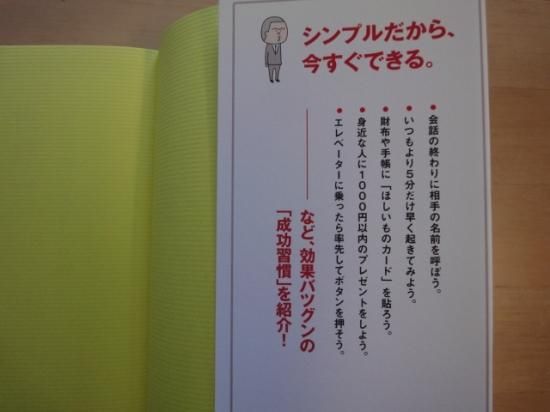 シンプルだから、
今すぐできる。
● 会話の終わりに相手の名前を呼ぼう。
● いつもより5分だけ早く起きてみよう。
● 財布や手帳に「ほしいものカード」を貼ろう。
● 身近な人に1000円以内のプレゼントをしよう。
● エレベーターに乗ったら率先してボタンを押そう。
——など、効果バツグンの
「成功習慣」を紹介！